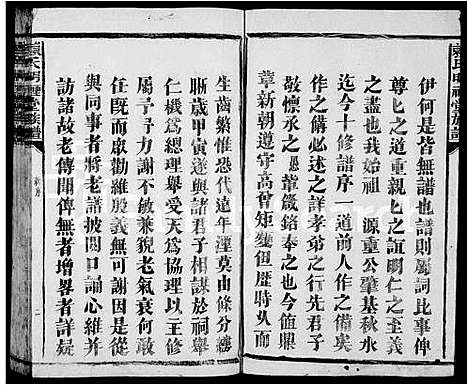 伊何是皆無譜也譜則屬詞比事俾
尊仁之道重親仁之誼明仁之至義
盡也我始祖 源重公肇基秋水
今十修譜序一道前人作之備矣
作之備必述之詳孝弟之行先君子
之懋 葷箴銘奉之也今值鼎
葦新朝遵守高曾矩矱但歷時久而
生齒繁惟恐代遠年湮莫由條分縷
晰歲甲寅遂與諸君子相謀於祠舉
仁機爲總理舉受天爲協理以主修
屬予予力謝不敏兼猊老氣衰何敢
任既而敦勸維殷義無可謝因是從
與同事者將老譜披閱口誦心維并
訪諸故老傳聞俾無者增畧者詳疑
氏明禋堂族譜
二